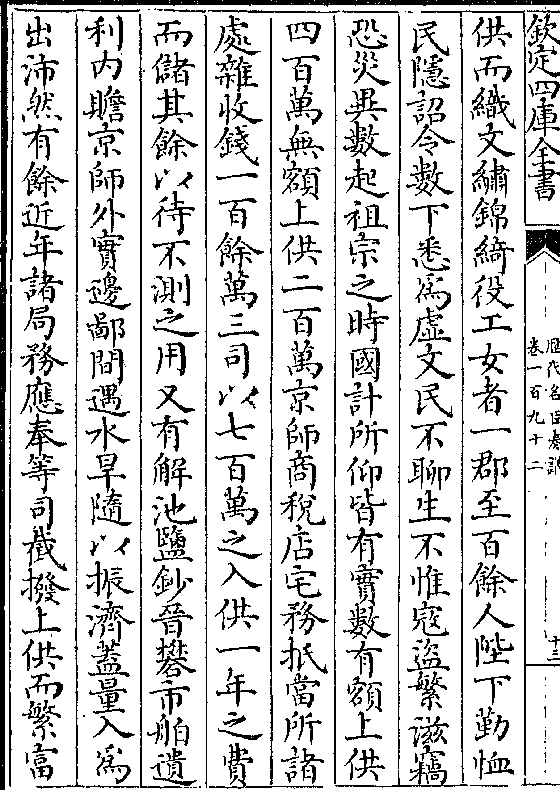 欽定四庫全書
歷代名臣奏議
卷一百九十二
十三
供而織文繡錦綺役工女者一郡至百餘人陛下勤恤
民隱詔令數下悉為虛文民不聊生不惟寇盜繁滋竊
恐災異數起祖宗之時國計所仰皆有實數有額上供
四百萬無額上供二百萬京師商稅店宅務抵當所諸
處雜收錢一百餘萬三司以七百萬之入供一年之費
而儲其餘以待不測之用又有解池鹽鈔晉礬市舶遺
利內贍京師外實邊鄙間遇水旱隨以振濟蓋量入為
出沛然有餘近年諸局務應奉等司截撥上供而繁富